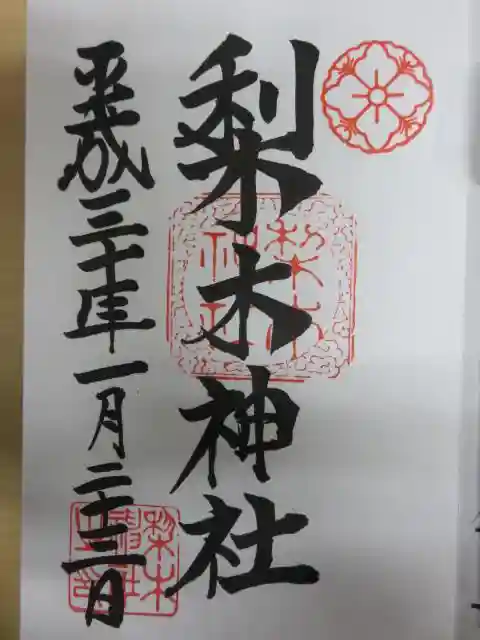 梨木神社
平成三十年一月二十三日
梨木神社